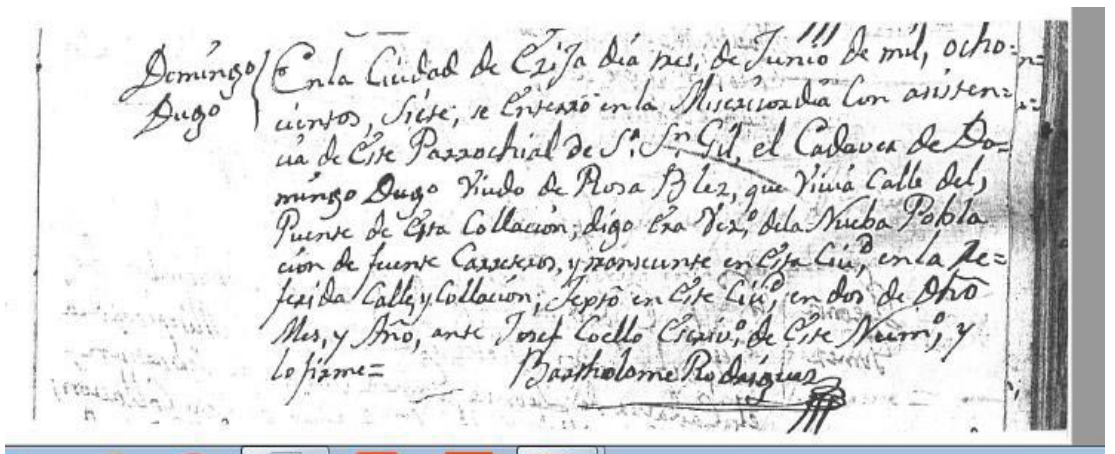 Domingo
Dugo
En la Ciudad de Exija dia tres, de Junio de mil, ocho=
cientos, Siete; se Enterró en la Misericordia Con asisten=
cia de Este Parrochial de Sr. Sn. Gil, el Cadaver de Do=
mingo Dugo Viudo de Rosa Blez, que Vivia Calle del,
Puente de Esta Collacion; digo Era Vezo. de la Nueba Pobla
cion de fuente Carreteros, y transeunte en Esta Ciud. en la Re=
ferida Calle, y Collacion, Textó en Este Ciud. en dos de Dho
Mes, y Año, ante Josef Coello Escrivo. de Este Numo. y
lo firme=
Bartholome Rodriguez